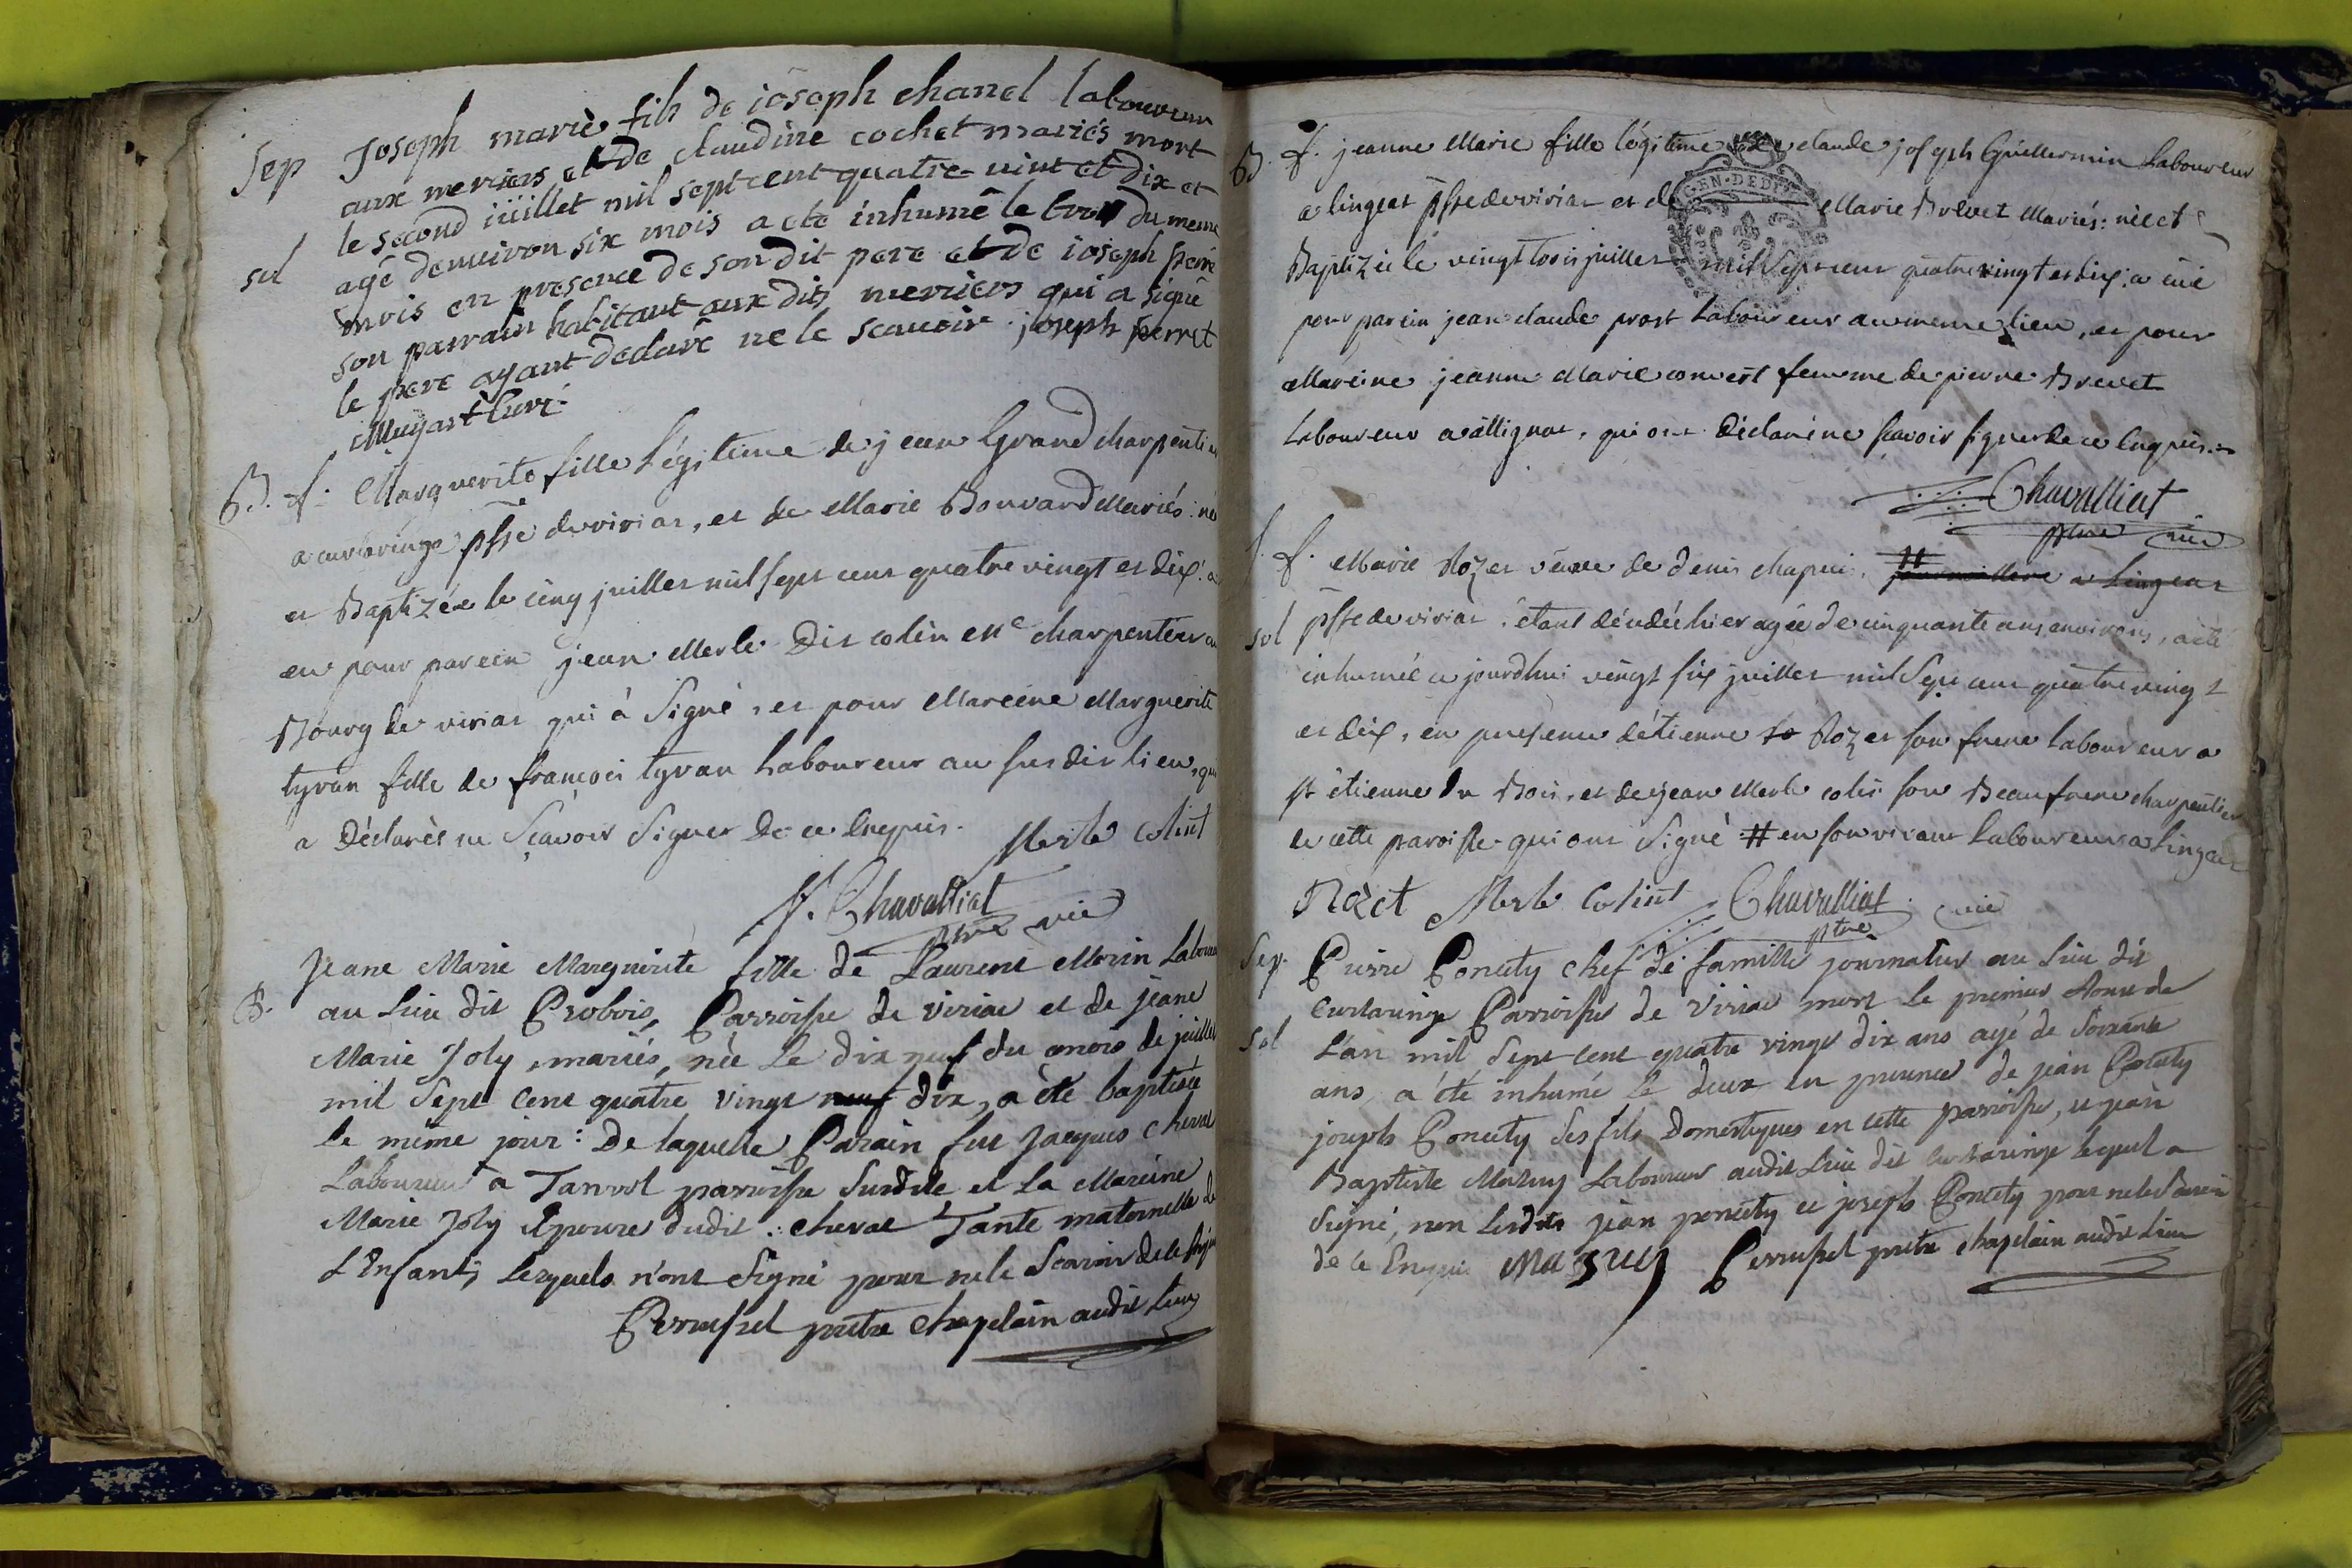 Sep Joseph marie fils de ioseph chanel laboureur
aux meriers et de claudine cochet mariés mort
le second iüillet mil sept cent quatre-vint et dix et
sol agé denuiron six mois a eté inhumé le trois du meme
mois en presence de son dit pere et de ioseph
son parrain habitant aux dits meriers qui a signé
le pere ayant declaré ne le scauoir joseph perret
curé
B. f. Marguerite fille Légitime de jean Grand charpentier
a curtaringe psse de viriat, et de Marie Bouvard Mariés: née
et Baptizée le cinq juillet mil sept cent quatre vingt et dix. a
eu pour parein jean Merle Dit colin Me charpentier au
Bourg de viriat qui à Signé, et pour Mareine Marguerite
tyran fille de françois tyran Laboureur au susdit lieu, qui
a Déclarée ne Sçavoir Signer De ce Enquis.
Merle Colint
Chavalliat
ptre vic
Jeane Marie Marguerite fille de Laurent Morin Labour
B. au Lieu dit Crobois, Parroisse de viriat et de jeane
Marie Joly, mariés, née Le dix neuf du mois de juillet
mil Sept Cent quatre vingt neuf dix, a été baptisée
le même jour: De laquelle Parain fut Jacques cheval
Laboureur à Tanvol parroisse Susdite et La Mareine
Marie Joly Epouse dudit: cheval Tante maternelle de
L'Enfant, Lesquels n'ont Signé pour ne le Scavoir de ce
Perrusset prêtre chapelain audit Lieu
B. f. jeanne Marie fille légitime de claude joseph Guillermin Laboureur
a lingeat psse de viriat et de Marie Brevet Mariés: née et
Baptizée le vingt trois juillet mil sept cent quatre vingt et dix. a eüe
C·EN·DEDI
pour parein jean claude prost Laboureur au meme lieu, et pour
Mareine jeanne Marie convert femme de pierre Brevet
Laboureur a attignat, qui ont Déclaré ne sçavoir signer de ce Enquis.
Chavalliat
ptre vic
S. f. Marie Rozet veuve de denis chapui, # journaliere a Lingeat
sol psse de viriat, étant décedée hier agée de cinquante ans environs, a été
inhumée ajourdhui vingt six juillet mil Sept cent quatre vingt
et dix, en presence détienne Ro Rozet son frere laboureur a
st étienne du Bois, et de jean Merle colin son Beaufrere charpentier
de cette paroisse qui ont Signé # en son vivant Laboureur a Lingeat
Rozet Merle Colint Chavalliat vic
ptre
Sep. Pierre Poncety chef de famille journalier au Lieu dit
Curtaringe Parroisse de viriat mort le premier Aoust de
Sol L'an mil Sept cent quatre vingt dix ans agé de Soixante
ans, a été inhumé le deux en presence de jean Poncety
joseph Poncety ses fils Domestiques en cette parroisse, et jean
Baptiste Mazuy Laboureur audit Lieu dit curtaringe lequel a
Signé, non lesdits jean poncety et joseph Poncety pour ne le Scavoir
de ce Enquis Mazuy Perrusset pretre chapelain audit Lieu